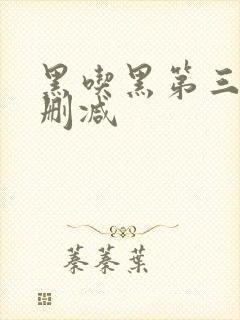 黑喫黑第三
删减
蓁蓁葉